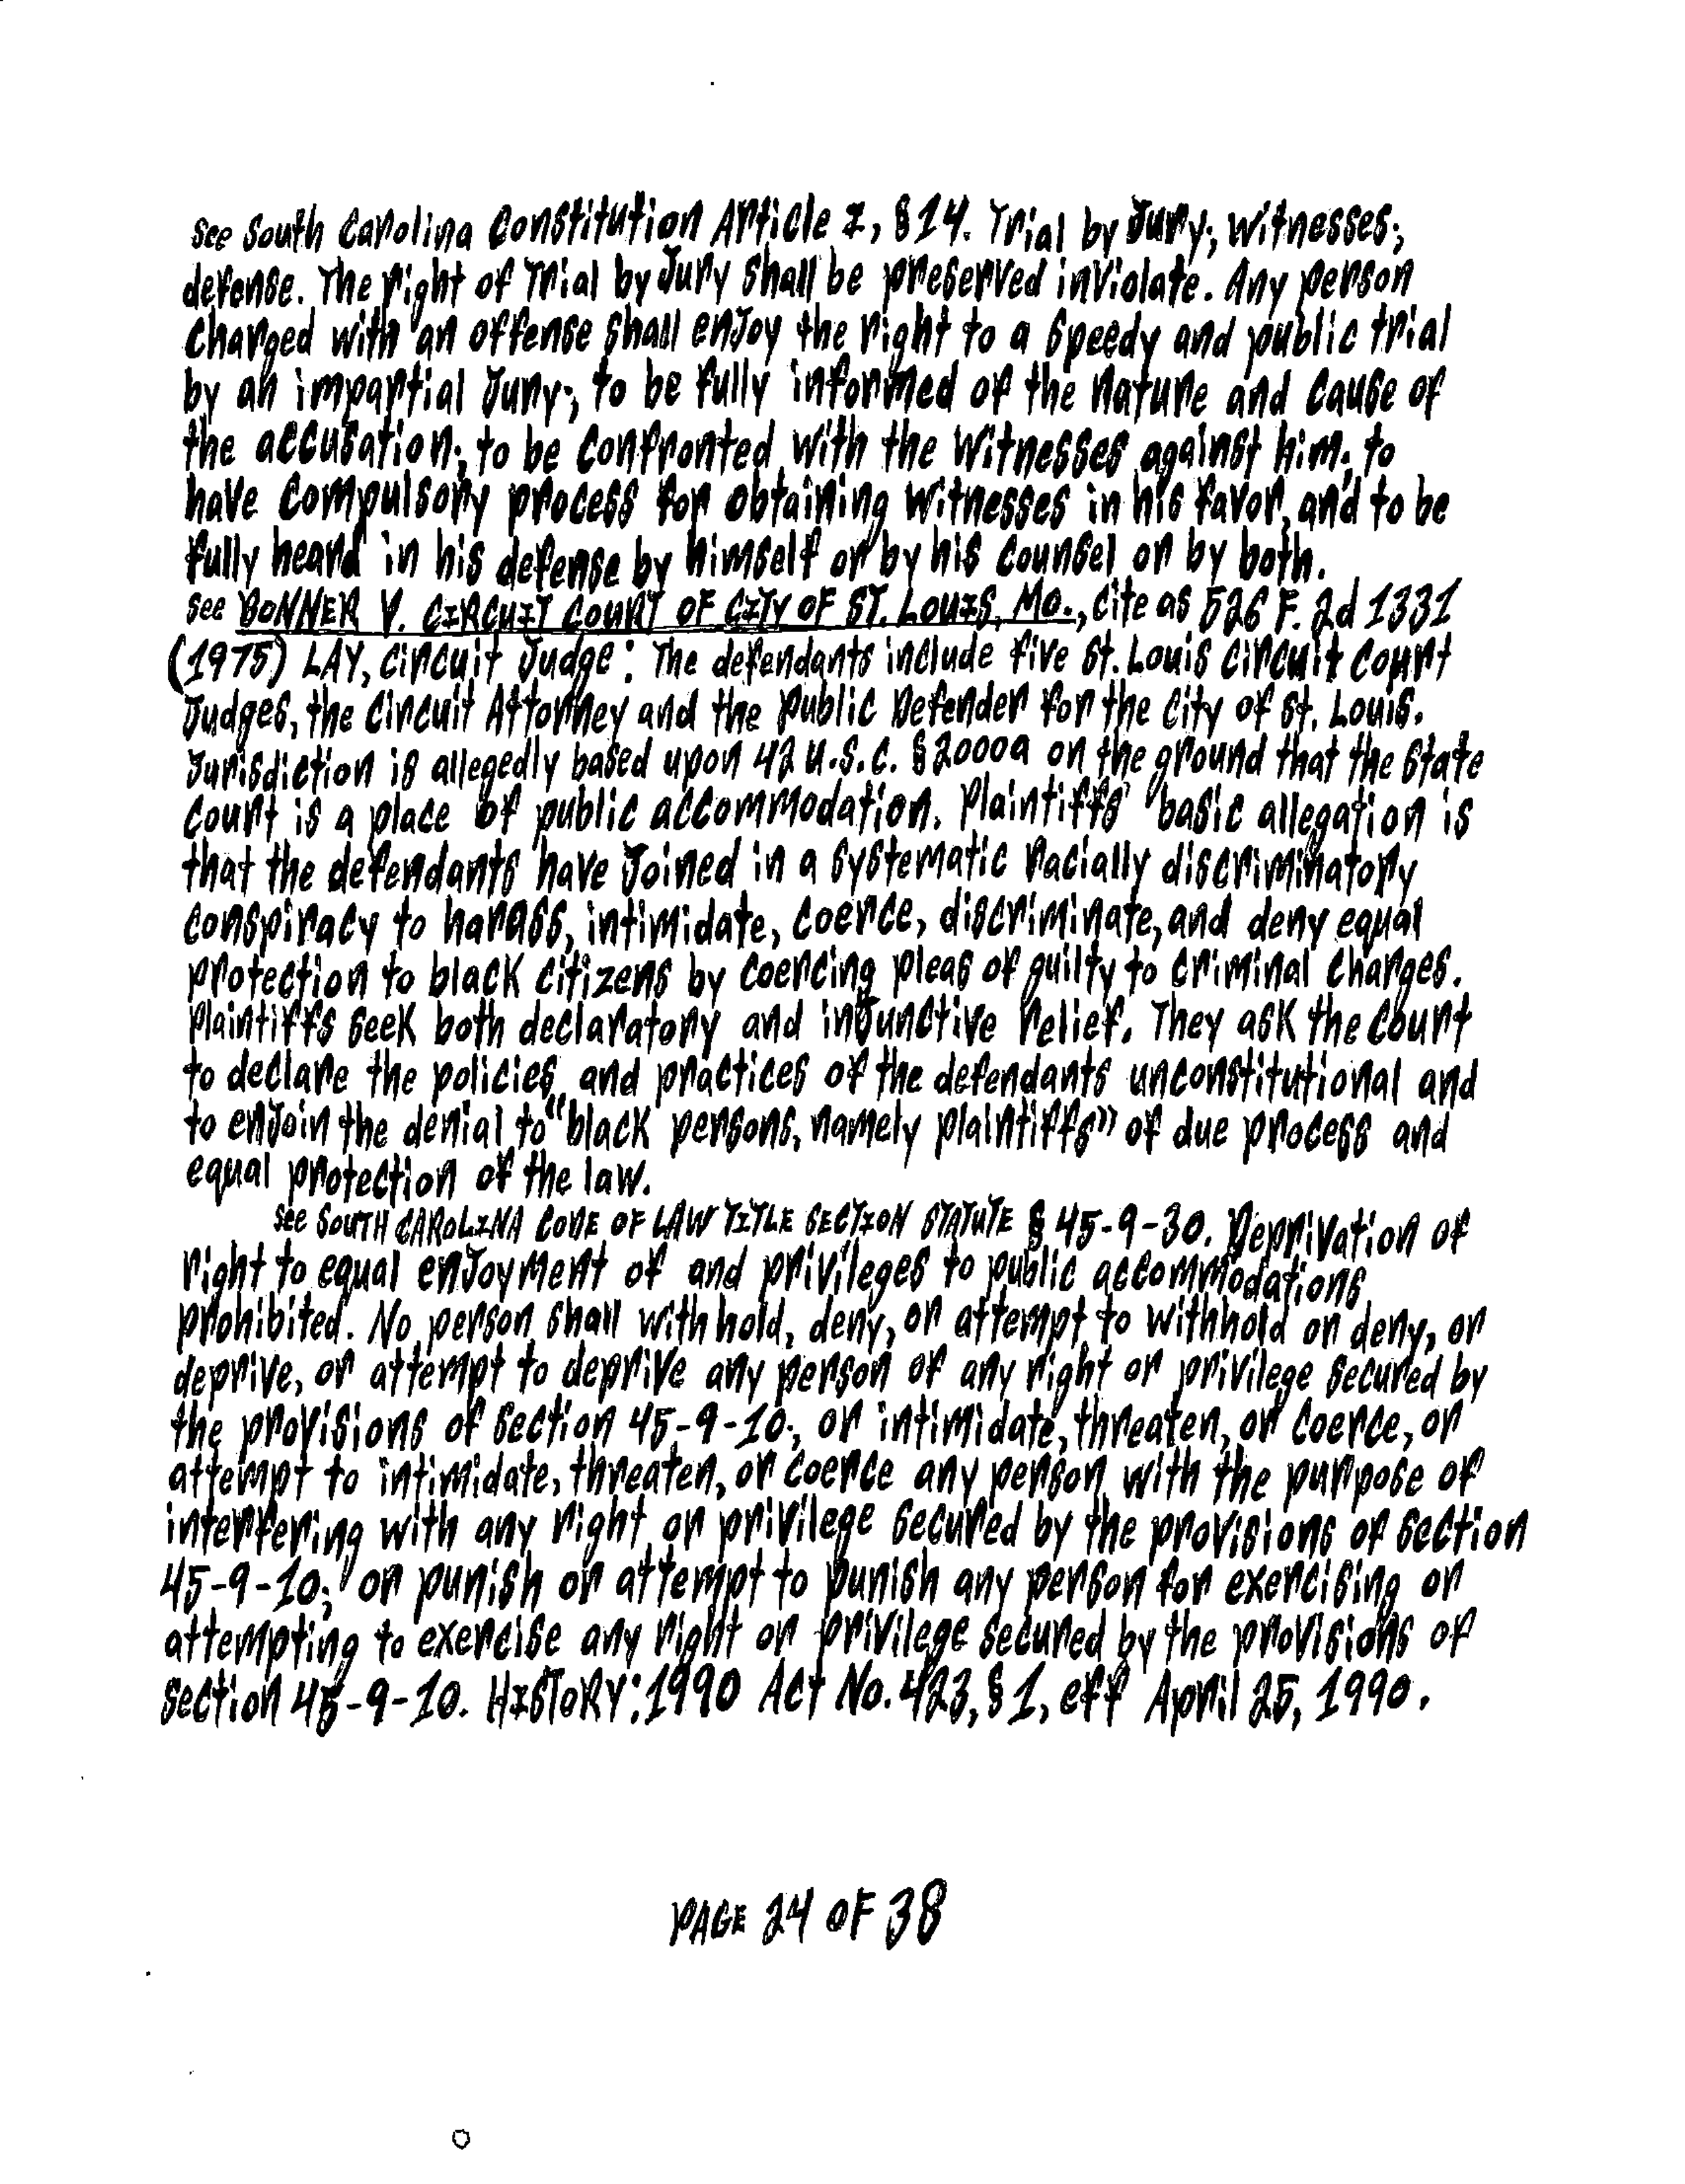 see South Carolina Constitution Article I, § 14. Trial by Jury; witnesses;
defense. The right of Trial by Jury shall be preserved inviolate. Any person
charged with an offense shall enjoy the right to a speedy and public trial
by an impartial Jury; to be fully informed of the nature and cause of
the accusation; to be confronted with the witnesses against him; to
have compulsory process for obtaining witnesses in his favor, and to be
fully heard in his defense by himself or by his counsel or by both.
see BONNER V. CIRCUIT COURT OF CITY OF ST. LOUIS, MO., cite as 526 F. 2d 1331
(1975) LAY, Circuit Judge: The defendants include five St. Louis Circuit Court
Judges, the Circuit Attorney and the Public Defender for the City of St. Louis.
Jurisdiction is allegedly based upon 42 U.S.C. § 2000a on the ground that the State
court is a place of public accommodation. Plaintiffs' basic allegation is
that the defendants have Joined in a systematic racially discriminatory
conspiracy to harass, intimidate, coerce, discriminate, and deny equal
protection to black citizens by coercing pleas of guilty to criminal charges.
Plaintiffs seek both declaratory and injunctive relief. They ask the court
to declare the policies and practices of the defendants unconstitutional and
to enjoin the denial to "black persons, namely plaintiffs" of due process and
equal protection of the law.
see SOUTH CAROLINA CODE OF LAW TITLE SECTION STATUTE § 45-9-30. Deprivation of
right to equal enjoyment of and privileges to public accommodations
prohibited. No person shall withhold, deny, or attempt to withhold or deny, or
deprive, or attempt to deprive any person of any right or privilege secured by
the provisions of section 45-9-10; or intimidate, threaten, or coerce, or
attempt to intimidate, threaten, or coerce any person with the purpose of
interfering with any right or privilege secured by the provisions of section
45-9-10; or punish or attempt to punish any person for exercising or
attempting to exercise any right or privilege secured by the provisions of
section 45-9-10. HISTORY: 1990 Act No. 423, § 1, eff April 25, 1990.
PAGE 24 OF 38